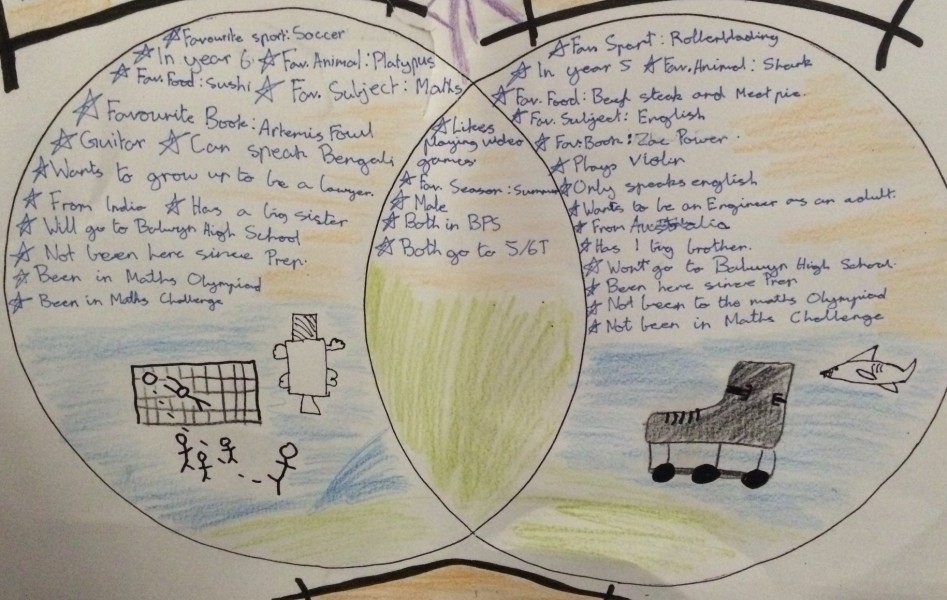 ☆ Favourite sport: Soccer
☆ In year 6 ☆ Fav. Animal: Platypus
☆ Fav. Food: Sushi ☆ Fav. Subject: Maths
☆ Favourite Book: Artemis Fowl
☆ Guitar ☆ Can speak Bengali
☆ Wants to grow up to be a lawyer.
☆ From India ☆ Has a big sister
☆ Will go to Balwyn High School
☆ Not been here since Prep.
☆ Been in Maths Olympiad
☆ Been in Maths Challenge
☆ Likes
playing video
games
☆ Fav. Season: Summer
☆ Male
☆ Both in BPS
☆ Both go to 5/6T
☆ Fav. Sport: Rollerblading
☆ In year 5 ☆ Fav. Animal: Shark
☆ Fav. Food: Beef steak and Meat pie.
☆ Fav. Subject: English
☆ Fav. Book: Zac Power.
☆ Plays Violin
☆ Only speaks english
☆ Wants to be an Engineer as an adult.
☆ From Australia
☆ Has 1 big brother.
☆ Won't go to Balwyn High School.
☆ Been here since Prep
☆ Not been to the maths Olympiad
☆ Not been in Maths Challenge